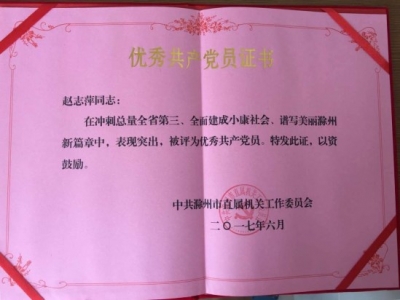 优秀共产党员证书
赵志萍同志：
在冲刺总量全省第三、全面建成小康社会、谱写美丽滁州
新篇章中，表现突出，被评为优秀共产党员。特发此证，以资
鼓励。
中共滁州市直属机关工作委员会
二〇一七年六月